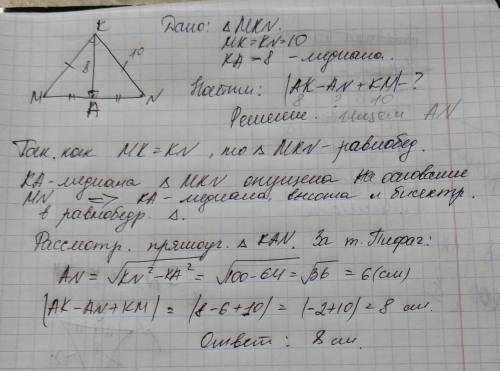 K
Дано: △ MKN.
MK=KN=10
KA=8 - медиана.
8
10
M
A
N
Найти: |AK-AN+KM|-?
8 ? 10
Решение. Ищем AN
Так как MK=KN, то △ MKN-равнобед.
KA-медиана △ MKN опущена на основание
MN => KA-медиана, высота и бисектр.
в равнобедр. △.
Рассмотр. прямоуг. △ KAN. За т. Пифаг:
AN=√KN²-KA²=√100-64=√36=6(см)
|AK-AN+KM|=|8-6+10|=|-2+10|=8 см.
Ответ: 8 см.